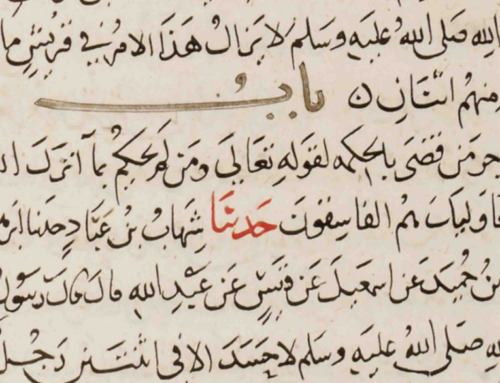 الله صَلَى اللهُ عَليَهِ وَسَلم لا يزَالُ هَذَا الامرُ في قرَيشٍ ما
منهمُ اثنَانِ ه بابُ
اجرِ مَن قَضَى بالحكمهِ لقولهِ تعَالَى وَمَن لَم يحكمُ بمَا آنزَلَ ال
فاوليكَ هُم الفَاسِقونَ حَدثنَا شِهَابُ بن عَبَّادٍ حَدثنا ابرَه
بنُ حُمَيدٍ عَن اسمعيلَ عَن قيَسٍ عَن عَبَدِ اللهِ قالَ قالَ رَسُولُ
اللهِ صَلَى اللهُ عَليَهِ وَسَلم لا حَسَدَ الا في اثنتَين رَجُلٌ